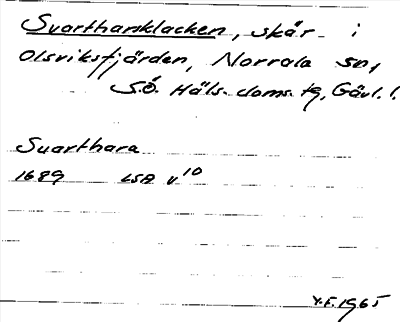 Svartharsklacken, skär i
Olsviksfjärden, Norrala sn,
S.Ö. Häls. doms. tg, Gävl. l.
Svarthara
1689 LSA V10
Y.F. 1965